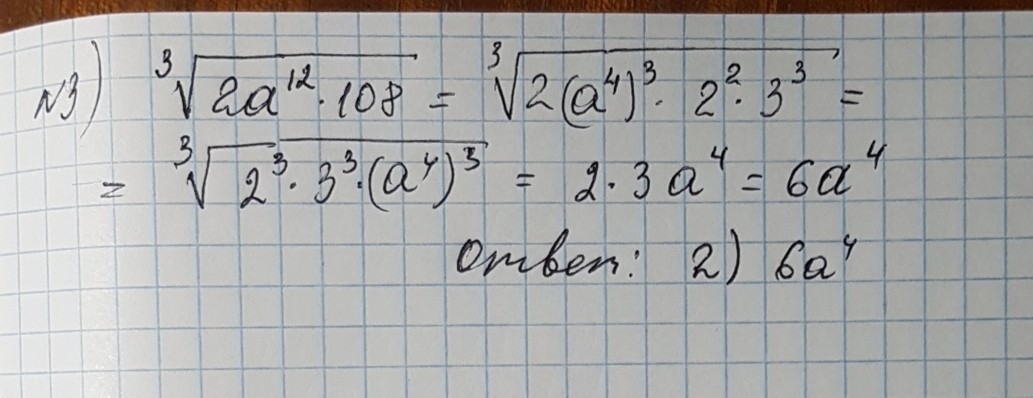 №3) ∛(2a¹²·108) = ∛(2(a⁴)³·2²·3³) =
= ∛(2³·3³·(a⁴)³) = 2·3a⁴ = 6a⁴
Ответ: 2) 6a⁴